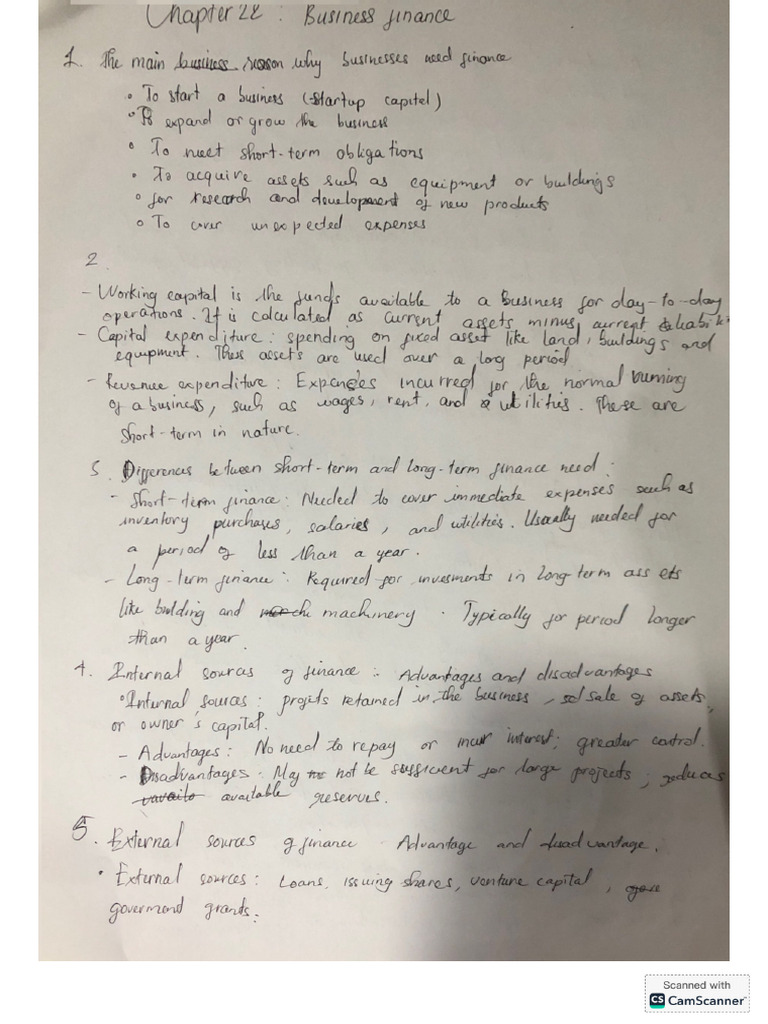 Chapter 22 : Business finance
1. The main business reason why businesses need finance
• To start a business (startup capital)
• To expand or grow the business
• To meet short-term obligations
• To acquire assets such as equipment or buildings
• for research and development of new products
• To cover unexpected expenses
2.
- Working capital is the funds available to a business for day-to-day
operations. It is calculated as current assets minus current
- Capital expenditure : spending on fixed asset like land, buildings and
equipment. These assets are used over a long period
- Revenue expenditure : Expenses incurred for the normal running
of a business, such as wages, rent, and utilities. These are
short-term in nature.
3. Differences between short-term and long-term finance need :
- Short-term finance : Needed to cover immediate expenses such as
inventory purchases, salaries, and utilities. Usually needed for
a period of less than a year.
- Long-term finance : Required for invesments in long-term assets
like building and machinery. Typically for period longer
than a year.
4. Internal sources of finance : Advantages and disadvantages
• Internal sources : profits retained in the business, sale of assets,
or owner's capital.
- Advantages : No need to repay or incur interest; greater control.
- Disadvantages : May not be sufficient for large projects; reduces
available reserves.
5. External sources of finance Advantage and disadvantage.
• External sources : Loans, issuing shares, venture capital,
goverment grants.
Scanned with
CS CamScanner